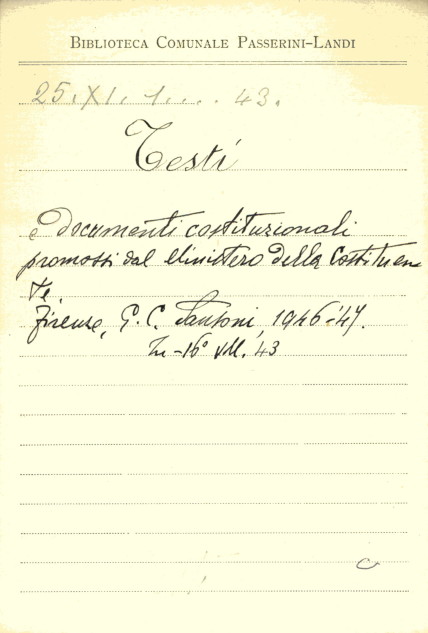 BIBLIOTECA COMUNALE PASSERINI-LANDI
25.XI. 1.... 43.
Testi
e Documenti costituzionali
promossi dal Ministero della Costituen
te.
Firenze, G. C. Sansoni, 1946-'47.
In-16° vol. 43
c